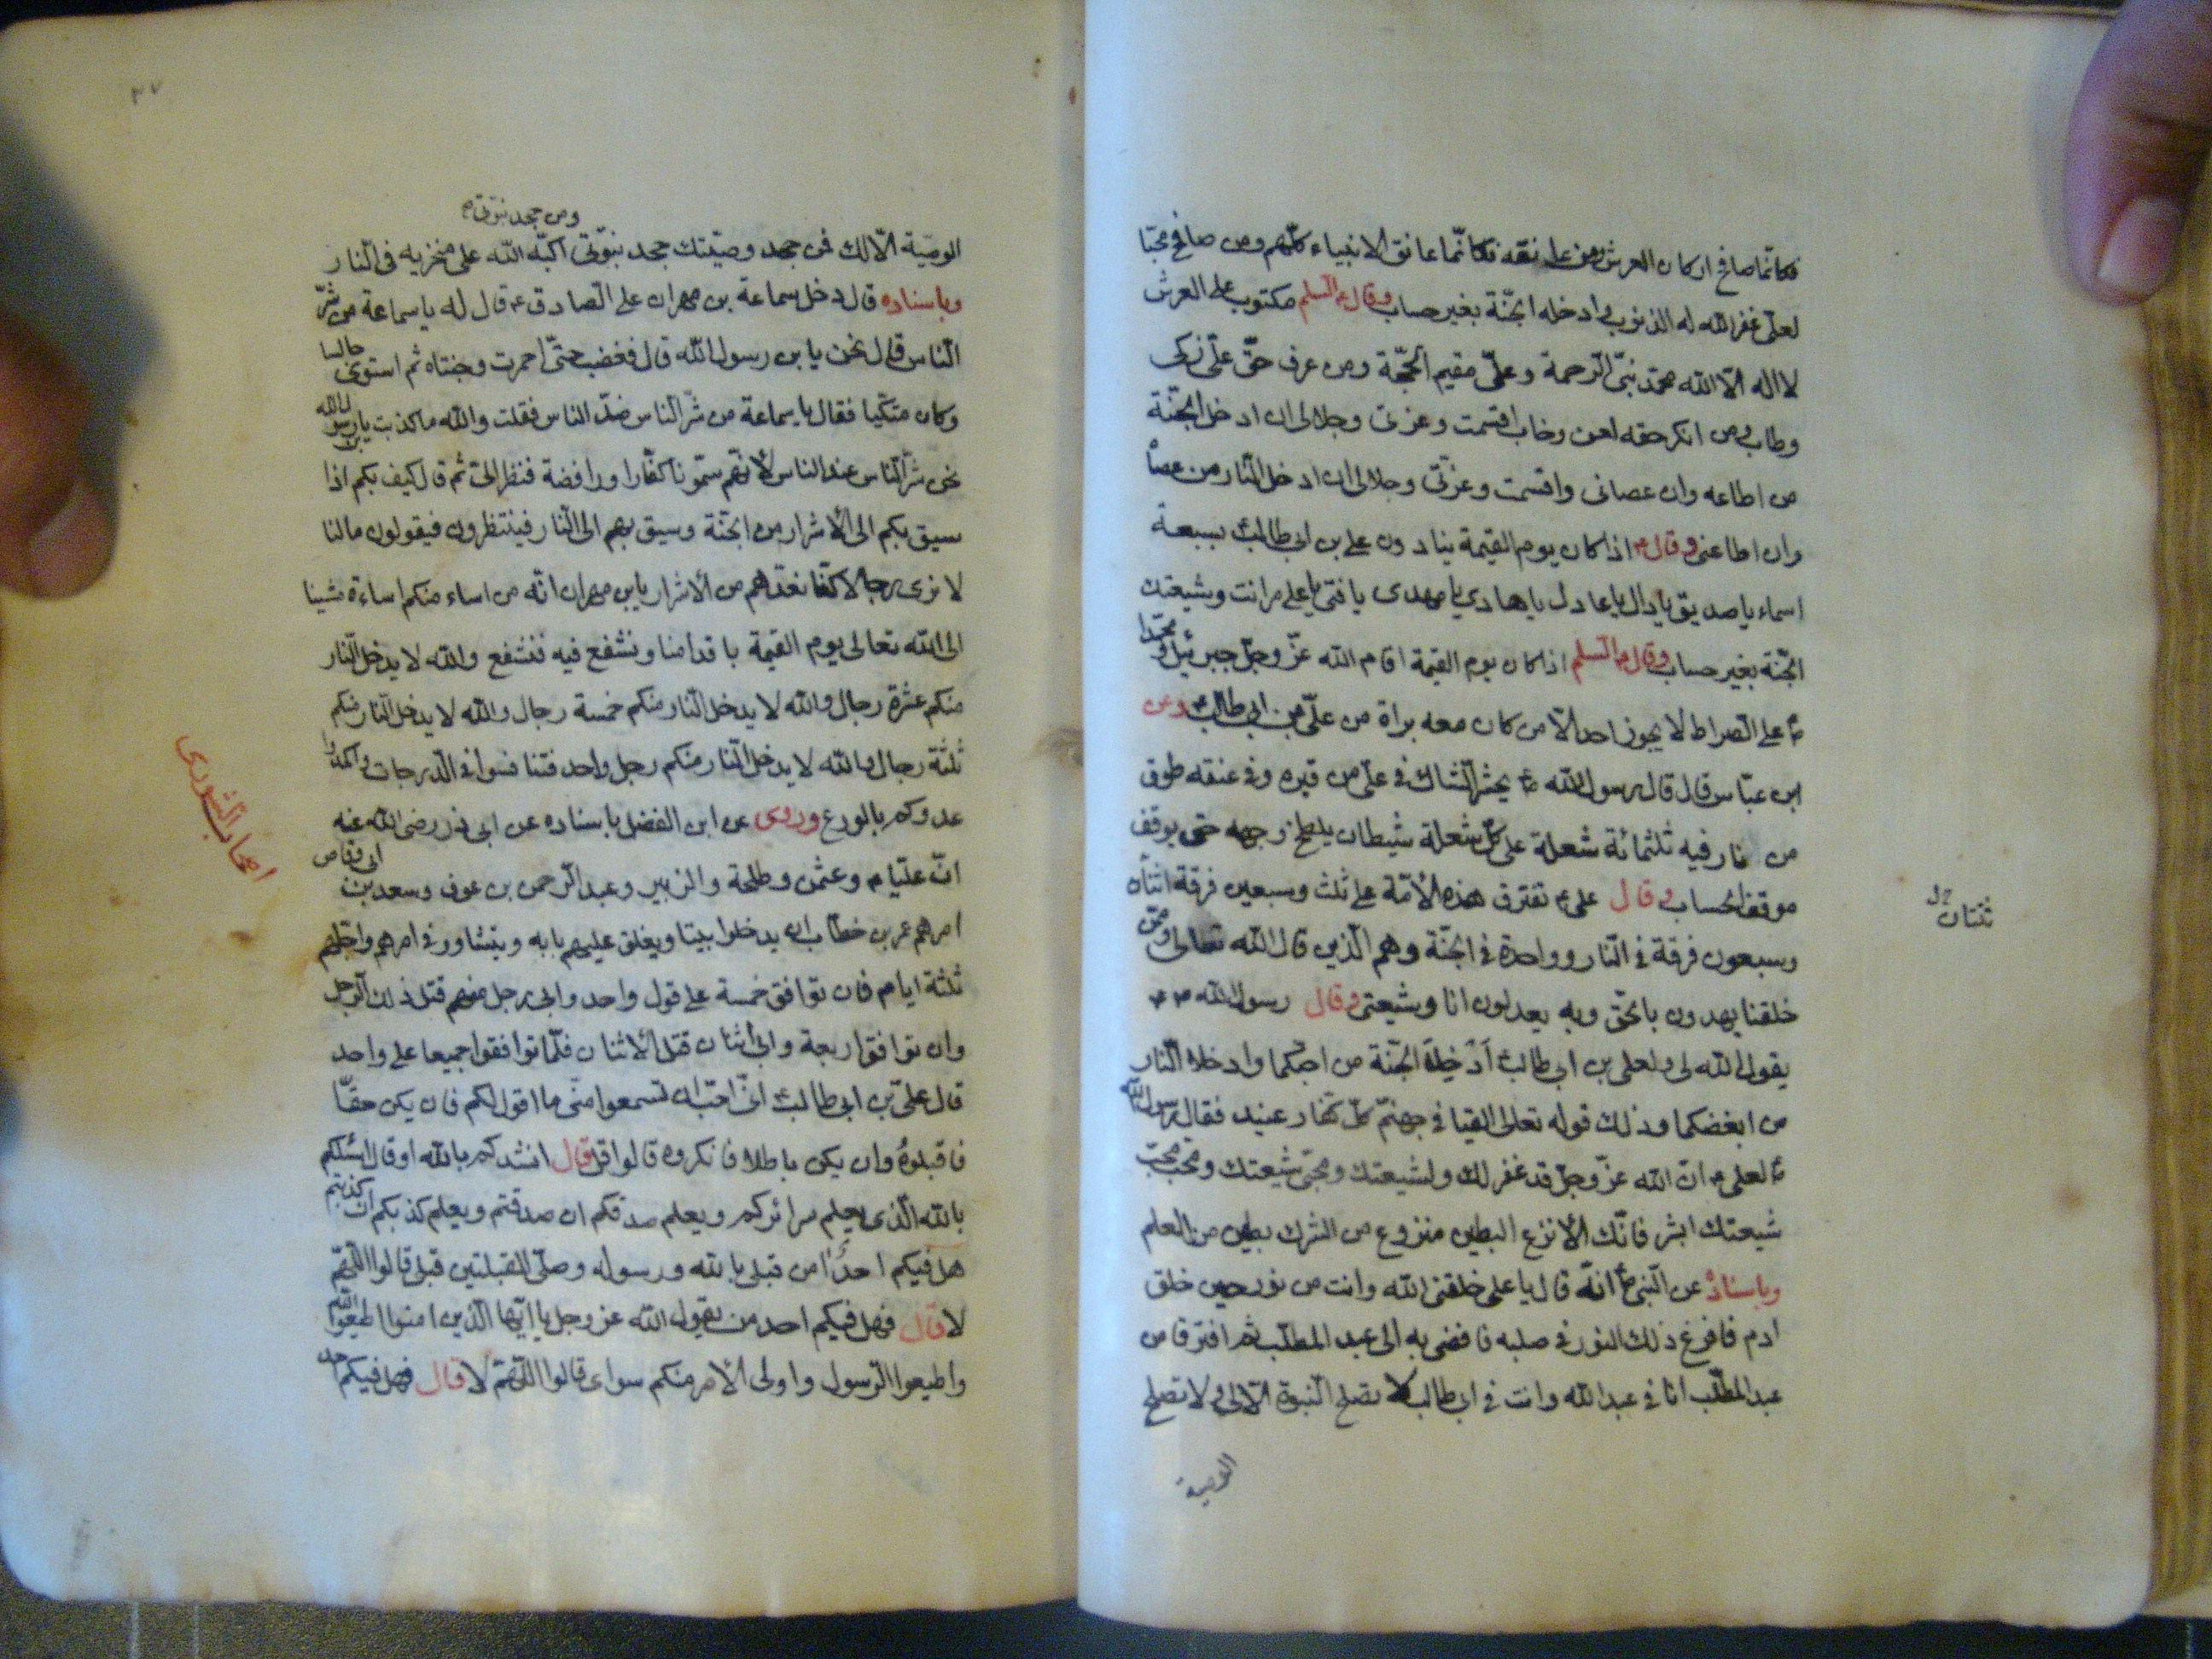 فكانّما صافح اركان العرش ومن عانقه فكانّما عانق الانبياء كلّهم ومن صافح محبّا
لعلى غفر الله له الذنوب وادخله الجنّة بغير حساب وقال ع السلم مكتوب على العرش
لا اله الّا الله محمّد نبىّ الرّحمة وعلىّ مقيم الحجّة ومن عرف حقّ علىّ زكى
وطاب ومن انكر حقه لعن وخاب اقسمت وعزتى وجلالى ان ادخل الجنّة
من اطاعه وان عصانى واقسمت وعزّتى وجلالى ان ادخل النّار من عصاه
وان اطاعنى وقال ع اذا كان يوم القيمة ينادون على بن ابى طالب بسبعة
اسماء يا صديق يا دال يا عادل يا هادى يا مهدى يا فتى يا على مر انت وشيعتك
الجنّة بغير حساب وقال ع السلم اذا كان يوم القيمة اقام الله عزّ وجلّ جبرئيل و محمّدا
ص على الصّراط لا يجوز احد الّا من كان معه براة من علىّ بن ابى طالب ع وعن
ابن عبّاس قال قال رسول الله ص يحشر الشّاك فى علىّ من قبره وفى عنقه طوق
من نار فيه ثلثمائة شعلة على كلّ شعلة شيطان يلطخ وجهه حتى يوقف
موقف الحساب وقال على ع تفترق هذه الأمّة على ثلث وسبعين فرقة اثنان
ثنتان خ ل
وسبعون فرقة فى النّار وواحدة فى الجنّة وهم الّذين قال الله تعالى وممّن
خلقنا يهدون بالحقّ وبه يعدلون انا وشيعتى وقال رسول الله ص
يقول الله لى ولعلى بن ابى طالب أدخلا الجنّة من احبّكما وادخلا النّار
من ابغضكما وذلك قوله تعالى القيا فى جهنّم كلّ كفّار عنيد فقال رسول الله
ص لعلى ع انّ الله عزّ وجلّ قد غفر لك ولشيعتك ومحبّى شيعتك ومحبّ محبّ
شيعتك ابشر فانّك الأنزع البطين منزوع من الشرك بطين من العلم
وباسناده عن النّبى ص انّه قال يا على خلقنى الله وانت من نور حين خلق
ادم فافرغ ذلك النور فى صلبه فافضى به الى عبد المطلّب ثم افترقا من
عبد المطّلب انا فى عبد الله وانت فى ابى طالب لا تصلح النّبوة الّا لى ولا تصلح
الوصية
٣٧
ومن جحد نبوّتى ص
الوصيّة الّا لك فمن جحد وصيّتك جحد نبوّتى اكبّه الله على منخريه فى النّار
وباسناده قال دخل سماعة بن مهران على الصّادق ع قال له يا سماعة من شرّ
النّاس قال نحن يا بن رسول الله قال فغضب حتّى احمرت وجنتاه ثم استوى جالسا
وكان متكيا فقال يا سماعة من شرّ النّاس عند الناس فقلت والله ما كذبت يا بن رسول الله
نحن شرّ النّاس عند الناس لأنّهم سمّونا كفّارا ورافضة فنظر الىّ ثم قال كيف بكم اذا
سيق بكم الى الجنّة وسيق بهم الى النّار فينتظرون فيقولون ما لنا
لا نرى رجالا كنّا نعدّهم من الأشرار يا بن مهران انّه من اساء منكم اساءة مشينا
الى الله تعالى يوم القيمة باقدامنا ونشفع فيه فنشفع والله لا يدخل النّار
منكم عشرة رجال والله لا يدخل النّار منكم خمسة رجال والله لا يدخل النّار منكم
ثلثة رجال والله لا يدخل النّار منكم رجل واحد فتنافسوا فى الدّرجات واكمدوا
عدوكم بالورع وروى عن ابن الفضل باسناده عن ابى ذر رضى الله عنه
اصحاب الشورى
انّ عليّا ع وعثمن وطلحة والزبير وعبد الرّحمن بن عوف وسعد بن ابى وقاص
امرهم عمر بن خطّاب ان يدخلوا بيتا ويغلق عليهم بابه ويتشاور فى امرهم واجّلهم
ثلثة ايام فان توافق خمسة على قول واحد وابى رجل منهم قتل ذلك الرّجل
وان توافق اربعة وابى أثنان قتل الأثنان فلمّا توافقوا جميعا على واحد
قال علىّ بن ابى طالب انّى احبّ ان تسمعوا منّى ما اقول لكم فان يكن حقّا
فاقبلوه وان يكن باطلا فانكروه قالوا قل قال انشدكم بالله او قال اسئلكم
بالله الّذى يعلم سرائركم ويعلم صدقكم ان صدقتم ويعلم كذبكم ان كذبتم
هل فيكم احد امن قبلى بالله ورسوله وصلّى القبلتين قبلى قالوا اللّهمّ
لا قال فهل فيكم احد من يقول الله عز وجل يا ايّها الّذين امنوا اطيعوا الله
واطيعوا الرّسول واولى الأمر منكم سواى قالوا اللّهمّ لا قال فهل فيكم احد